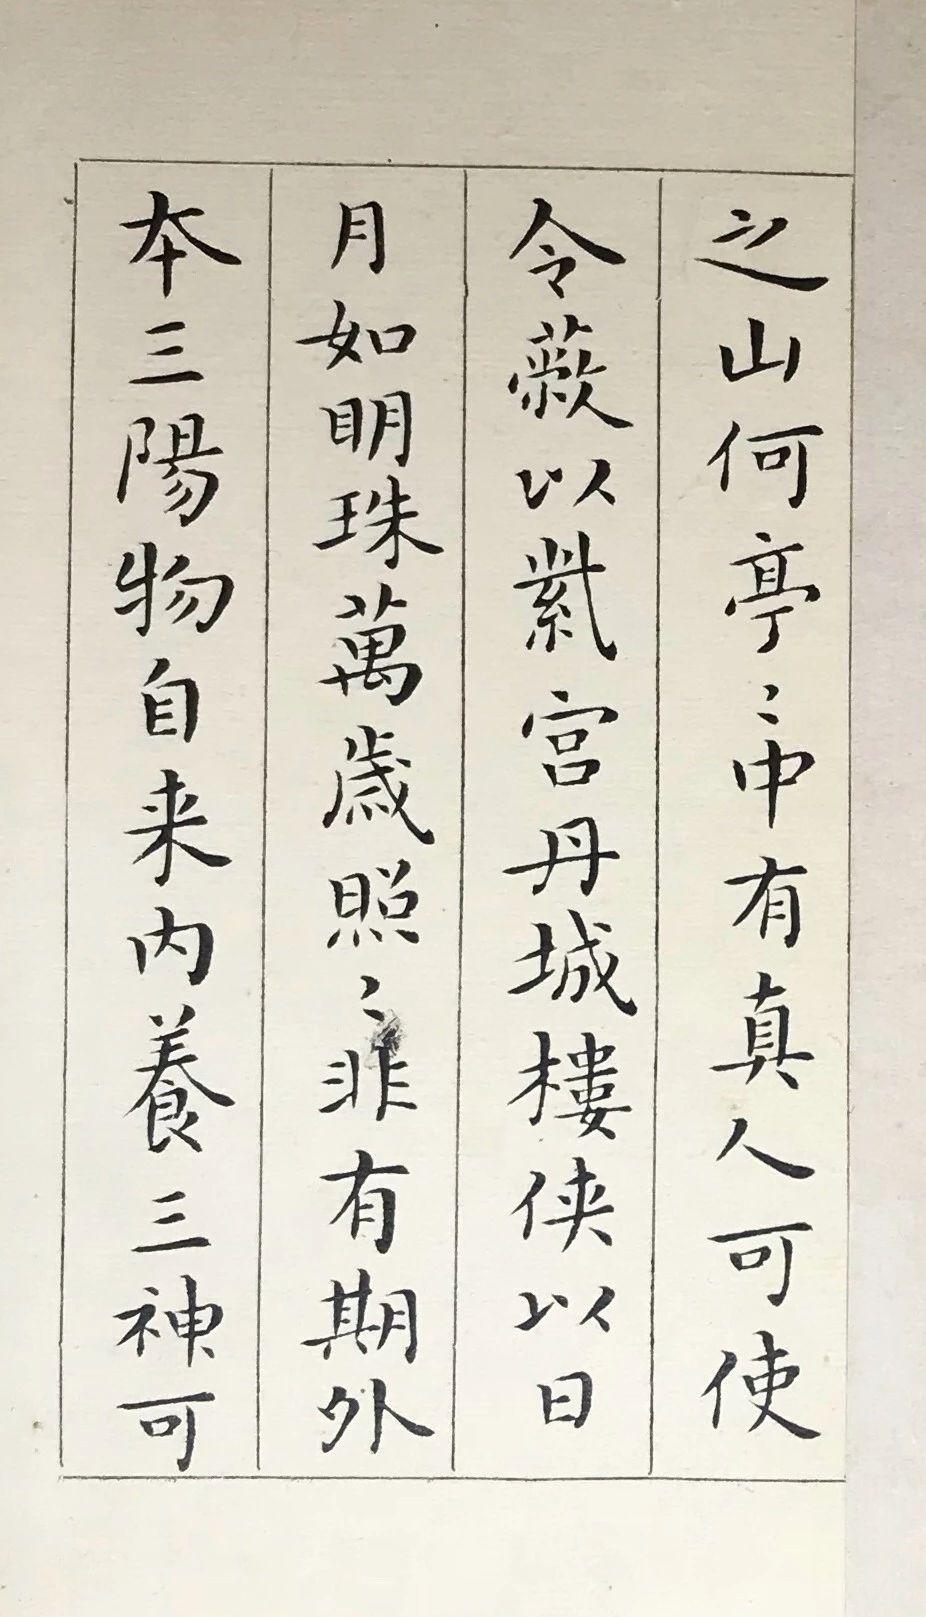 之山何亭〻中有真人可使
令蔽以紫宫丹城樓俠以日
月如眀珠萬歲照〻非有期外
本三陽物自来内養三神可